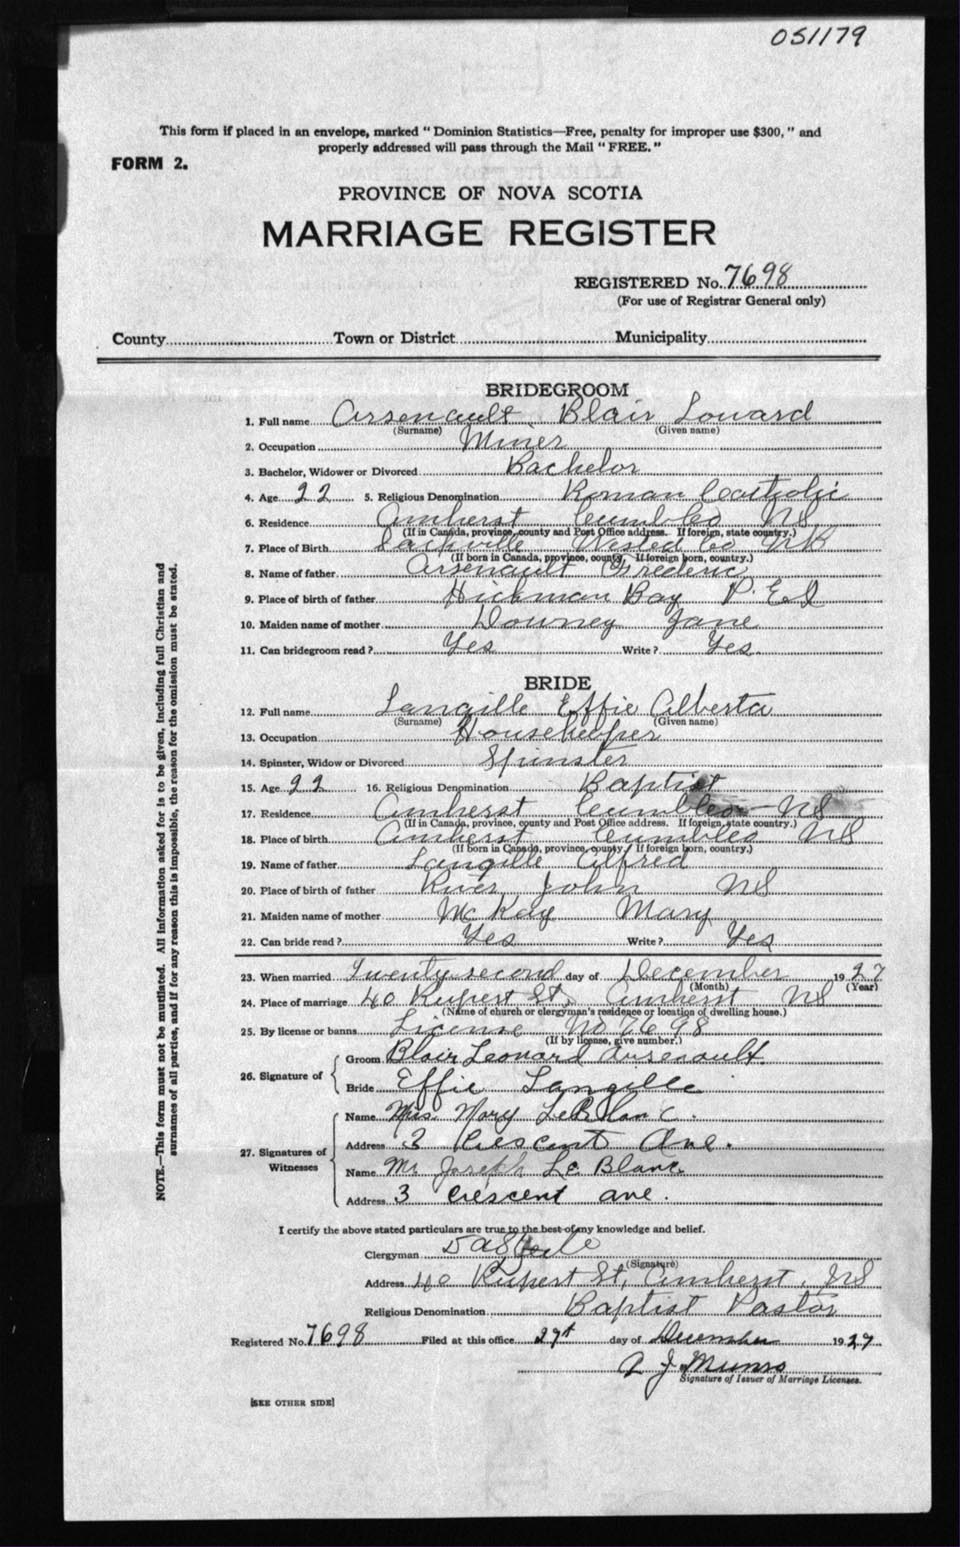 051179
This form if placed in an envelope, marked "Dominion Statistics—Free, penalty for improper use $300," and
properly addressed will pass through the Mail "FREE."
FORM 2.
PROVINCE OF NOVA SCOTIA
MARRIAGE REGISTER
REGISTERED No. 7698
(For use of Registrar General only)
County Town or District Municipality
BRIDEGROOM
1. Full name Arsenault Blair Lonard
(Surname) (Given name)
2. Occupation Miner
3. Bachelor, Widower or Divorced Bachelor
4. Age 22 5. Religious Denomination Roman Catholic
6. Residence Amherst Cumb Co NS
(If in Canada, province, county and Post Office address. If foreign, state country.)
7. Place of Birth Sackville Westd Co NB
(If born in Canada, province, county. If foreign born, country.)
8. Name of father Arsenault Frederic
9. Place of birth of father Hickman Bay P.E.I
10. Maiden name of mother Downey Jane
11. Can bridegroom read? Yes Write? Yes.
BRIDE
12. Full name Langille Effie Alberta
(Surname) (Given name)
13. Occupation Housekeeper
14. Spinster, Widow or Divorced Spinster
15. Age 22 16. Religious Denomination Baptist
17. Residence Amherst Cumb Co NS
(If in Canada, province, county and Post Office address. If foreign, state country.)
18. Place of birth Amherst Cumb Co NS
(If born in Canada, province, county. If foreign born, country.)
19. Name of father Langille Alfred
20. Place of birth of father River John NS
21. Maiden name of mother McKay Mary
22. Can bride read? Yes Write? Yes
23. When married Twenty second day of December 1927
(Month) (Year)
24. Place of marriage 40 Rupert St, Amherst NS
(Name of church or clergyman's residence or location of dwelling house.)
25. By license or banns License No 7698
(If by license, give number.)
26. Signature of
Groom Blair Leonard Arseneault
Bride Effie Langille
27. Signatures of Witnesses
Name Mrs Mary LeBlanc.
Address 3 Crescent Ave.
Name Mr Joseph Le Blanc
Address 3 Crescent ave.
I certify the above stated particulars are true to the best of my knowledge and belief.
Clergyman
(Signature)
Address 40 Rupert St, Amherst, NS
Religious Denomination Baptist Pastor
Registered No. 7698 Filed at this office 27th day of December 1927
A J Munro
Signature of Issuer of Marriage Licenses.
[SEE OTHER SIDE]
NOTE.—This form must not be mutilated. All information asked for is to be given, including full Christian and
surnames of all parties, and if for any reason this is impossible, the reason for the omission must be stated.